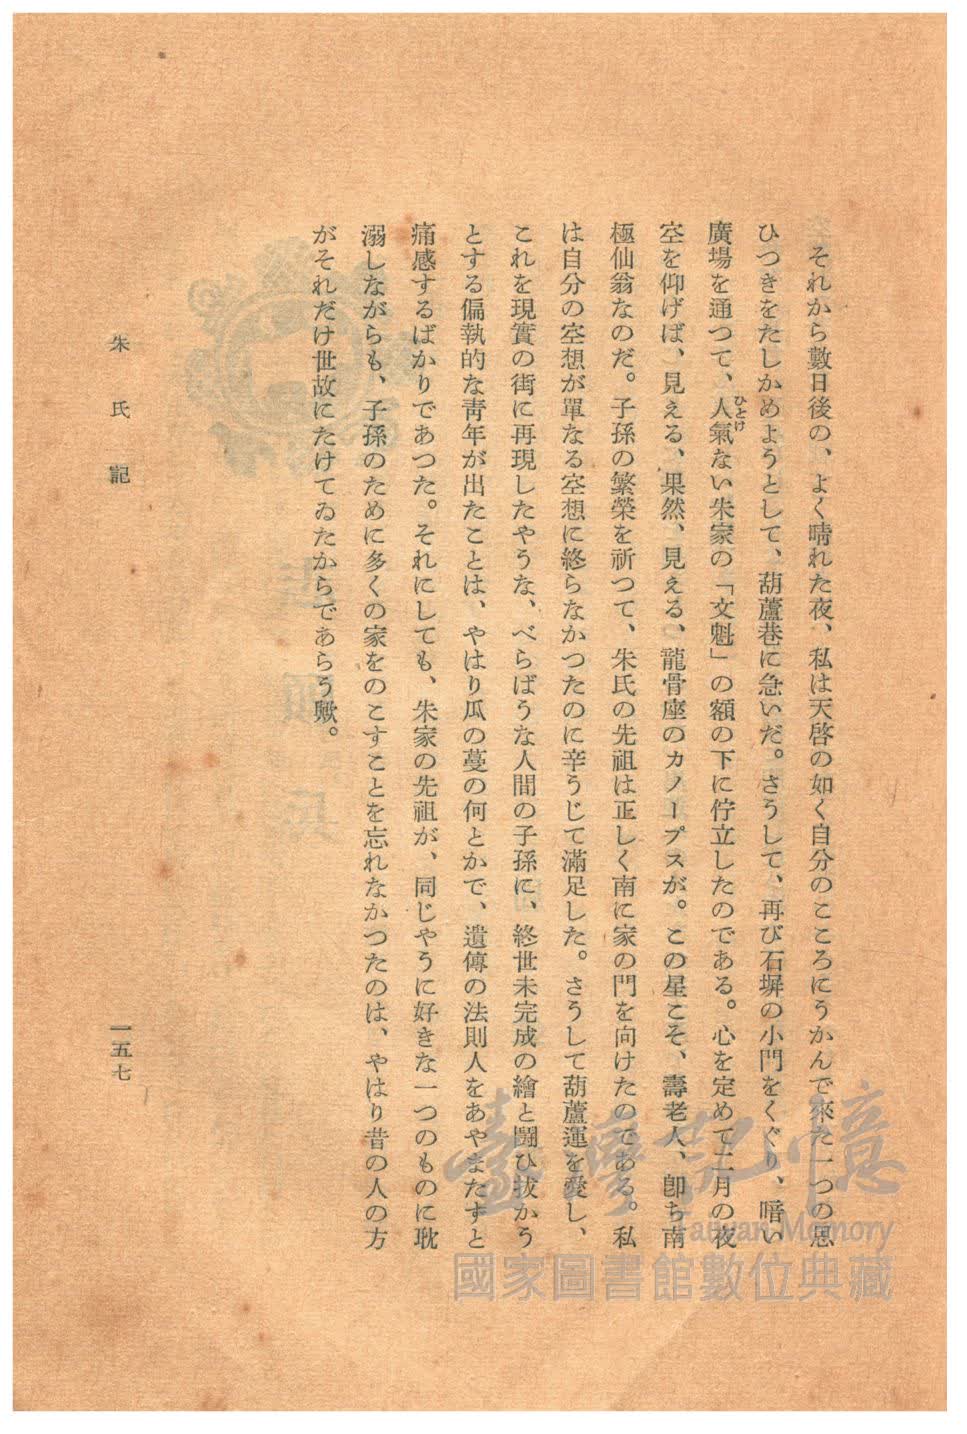 それから數日後の、よく晴れた夜、私は天啓の如く自分のこころにうかんで來た一つの思
ひつきをたしかめようとして、葫蘆巷に急いだ。さうして、再び石塀の小門をくぐり、暗い
廣場を通つて、人氣ない朱家の「文魁」の額の下に佇立したのである。心を定めて二月の夜
ひとけ
空を仰げば、見える、果然、見える、龍骨座のカノープスが。この星こそ、壽老人、卽ち南
極仙翁なのだ。子孫の繁榮を祈つて、朱氏の先祖は正しく南に家の門を向けたのである。私
は自分の空想が單なる空想に終らなかつたのに辛うじて滿足した。さうして葫蘆運を愛し、
これを現實の街に再現したやうな、べらばうな人間の子孫に、終世未完成の繪と鬪ひ拔かう
とする偏執的な靑年が出たことは、やはり瓜の蔓の何とかで、遺傳の法則人をあやまたずと
痛感するばかりであつた。それにしても、朱家の先祖が、同じやうに好きな一つのものに耽
溺しながらも、子孫のために多くの家をのこすことを忘れなかつたのは、やはり昔の人の方
がそれだけ世故にたけてゐたからであらう歟。
朱氏記
一五七
臺灣記憶
Taiwan Memory
國家圖書館數位典藏